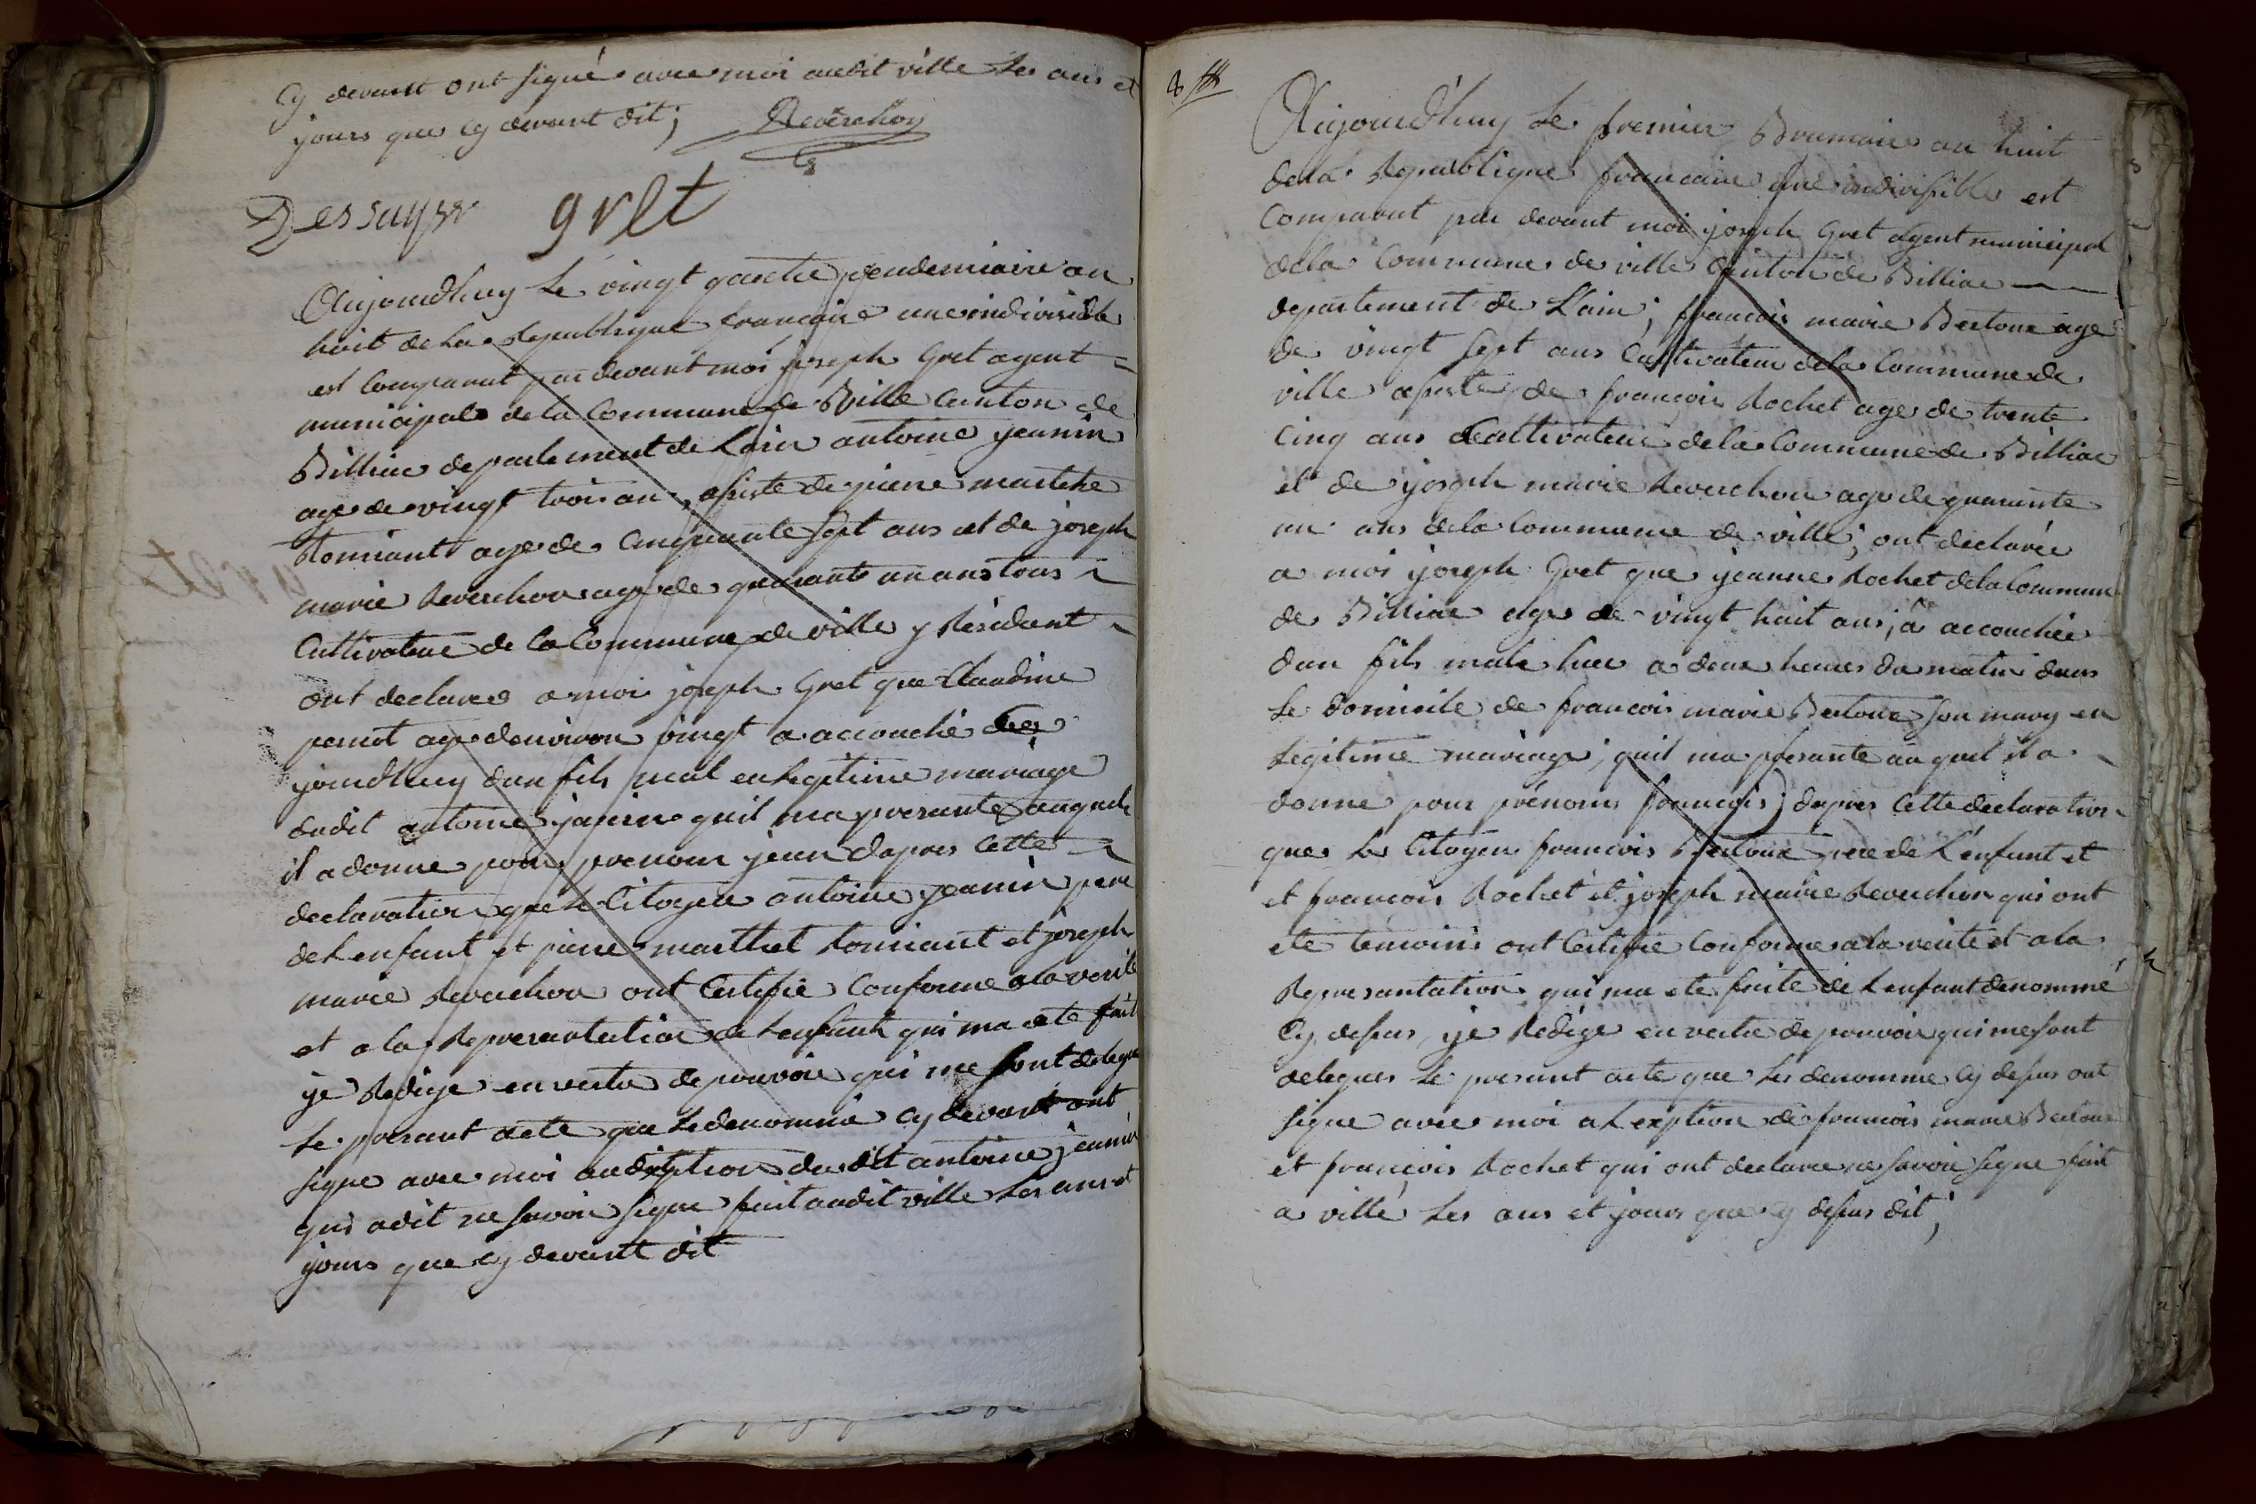 Cy devant ont signé avec moi audit ville les ans et
jours que cy devant dit; Reverchon
Dessayve gret
Aujourdhuy le vingt quatre vendemiaire an
huit de la Republique francaise une indivisible
est Comparut par devant moi joseph Gret agent
municipale de la Commune de Ville Canton de
Billiac departement de Lain antoine jeanin
age de vingt trois an, asiste de piere marthe
Romiant age de Cinquante sept ans et de joseph
marie Reverchon age de quarante un ans tous
Cultivateur de la Commune de ville y Residant
ont declare a moi joseph Gret que Claudine
pernot age denviron vingt a accouché
jourdhuy dun fils mal en legitime mariage
dudit antoine janin quil ma presanté auquel
il a donne pour prenom jean dapres Cette
declaration que le Citoyen antoine jeanin pere
de lenfant et piere marthet Romiant et joseph
marie Reverchon ont Certifie Conforme a la verité
et a la Represantation de lenfant qui ma ete fait
je Redige en vertu de pouvoir qui me sont delegue
Le presant acte que le denommé cy devant ont
signe avec moi du dit antoine jeanin
qui a dit ne savoir signe fait audit ville les ans et
jours que cy devant dit
8
Aujourd'huy le premier Brumaire an huit
de la Republique francaise une indivisible est
Comparut par devant moi joseph Gret agent municipal
de la Commune de ville Canton de Billiac
departement de L'ain; francois marie Bertone age
de vingt sept ans Cultivateur de la Commune de
ville asiste de françois Rochet age de trente
Cinq ans Cultivateur de la Commune de Billiac
et de joseph marie Reverchon age de quarante
un ans de la Commune de ville; ont declarée
a moi joseph Gret que jeanne Rochet de la Commune
de Billiac age de vingt huit ans; a accouchée
dun fils male hier a deux heures du matin dans
le Domicile de francois marie Bertone son mary en
Legitime mariage; quil ma presante au quel il a
donne pour prénoms francois; dapres Cette declaration
que le Citoyen francois Bertone pere de L'enfant et
et francois Rochet et joseph marie Reverchon qui ont
ete temoins ont Certifie Conforme a la verite et a la
Represantation qui ma ete faite de Lenfant denommé
Cy desus, je Redige en vertu de pouvoir qui me sont
delegues Le presant acte que les denomme cy desus ont
signe avec moi a Lexption de francois marie Bertone
et françois Rochet qui ont declare ne savoir signe fait
a ville Les ans et jours que cy desus dit;